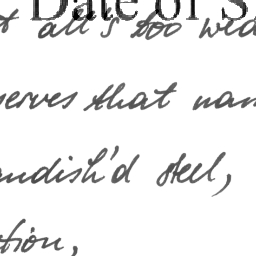 Date of S
t all's too wea
serves that nam
andish'd steel,
tion,